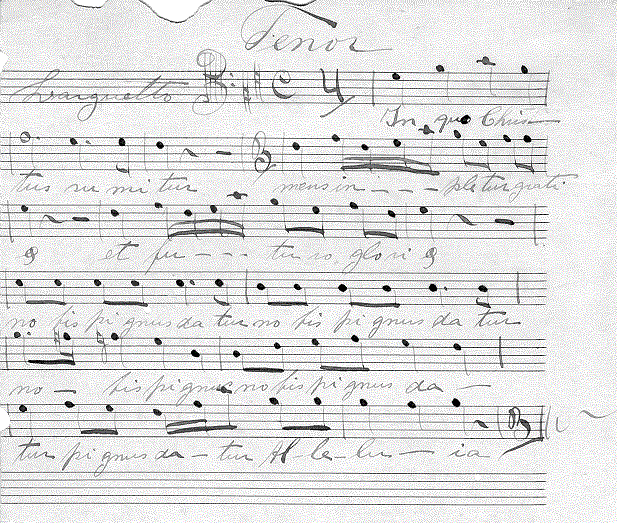 Tenor
Larguetto
In quo Chris
tus su mi tur mens in - - - pletur grati
e et fu - - - tu ro glori e
no bis pignus da tur no bis pi gnus da tur
no - bis pi gnus no bis pi gnus da -
tur pi gnus da - tur Al - le - lu - ia